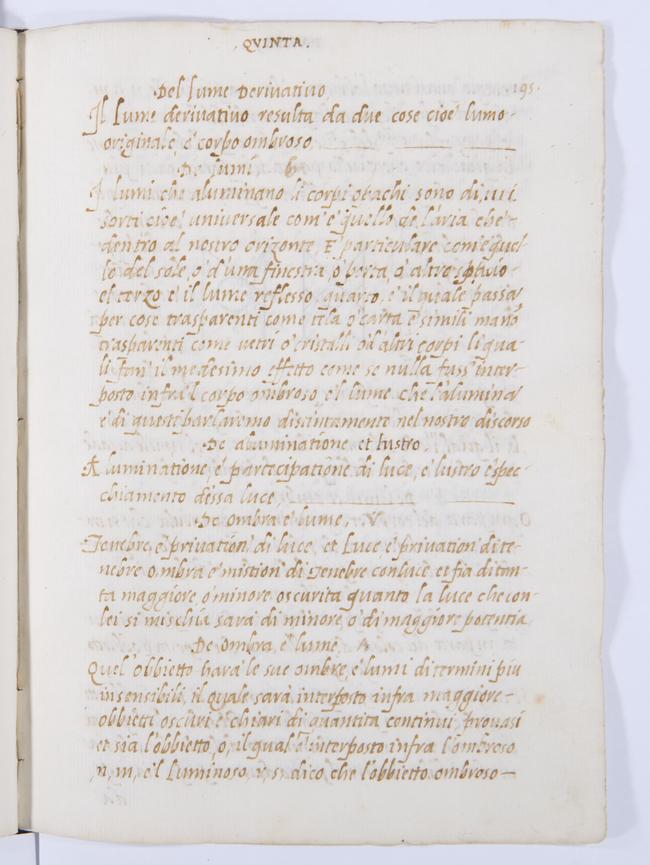 . QVINTA .
Del lume Deriuatiuo 195.
Il lume deriuatiuo resulta da due cose cioè lumo
originale e corpo ombroso
De lumi
I lumi che aluminano li corpi opachi sono di, iiii.
sorti cioe' uniuersale com'e' quello de l'aria che
dentro al nostro orizonte E particulare com'e quel
lo del sole, o' d'una finestra o' porta, o' altro spatio
el terzo e' il lume reflesso, quarto, e' il quale passa
per cose trasparenti come tela o' carta e simili ma nō
trasparenti come uetri o' cristalli o d'altri corpi li qua
li fan' il medesimo effetto come se nulla fuss' inter-
posto infra'l corpo ombroso e'l lume che l'alumina
e di queste parlaremo distintamente nel nostro discorso
De aluminatione et lustro
Aluminatione, e' partecipatione di luce, e lustro e spec-
chiamento d'essa luce,
De ombra e' lume, V
Tenebre, e' priuation' di luce, et luce e' priuation di te-
nebre ombra e' mistion' di tenebre con luce, et fia di tan-
ta maggiore, o' minore oscurita quanto la luce che con
lei si mischia sarà di minore, o' di maggiore potentia
De ombra e' lume, A
Quel' obbietto harà le sue ombre, e' lumi di termini piu
insensibili, il quale sarà interposto infra maggiore-
obbietti oscuri e' chiari di quantita continui, prouasi
et sia l'obbietto, o, il qual e' interposto infra l'ombroso
, n, m, e'l luminoso, r, s, dico che l'obbietto ombroso-